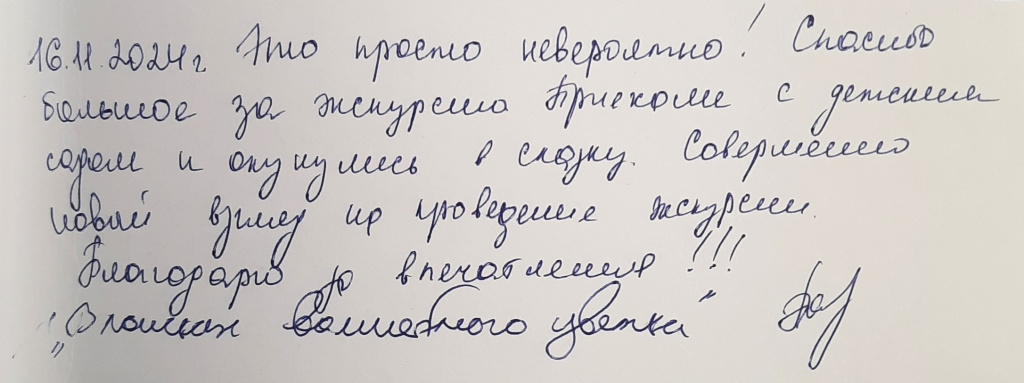 16.11.2024г. Это просто невероятно! Спасибо
большое за экскурсию Приехали с детским
садом и окунулись в сказку. Совершенно
новый взгляд на проведение экскурсии.
Благодарю за впечатления!!!
"В поисках волшебного цветка"